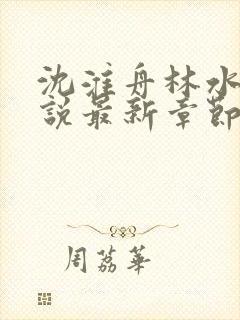 沈淮舟林水
說最新章節
周荔華